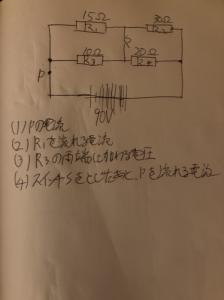 15Ω 30Ω
R₁ R₂
10Ω 20Ω
P R₃ R₄
90V
(1) Pの電流
(2) R₁を流れる電流
(3) R₃の両端に加わる電圧
(4) スイッチSをとじたあと、Pを流れる電流